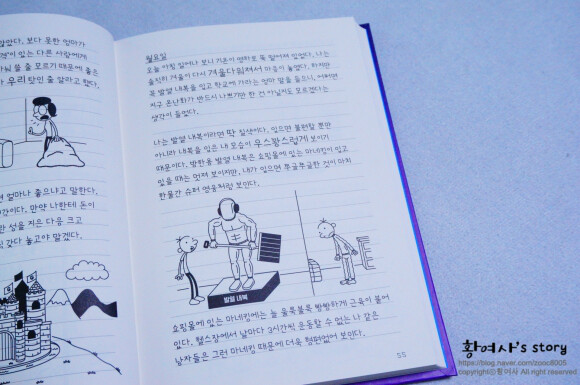 않았다. 보다 못한 엄마가
있는 다른 사람에게
줄 모르기 때문에 좋은
우리 탓인 줄 알라고 했다.
얼마나 좋으냐고 말한다.
만약 나한테 돈이
성을 지은 다음 크고
갖다 놓고야 말겠다.
월요일
오늘 아침 일어나 보니 기온이 영하로 뚝 떨어져 있었다. 나는
솔직히 겨울이 다시 겨울다워져서 마음이 놓였다. 하지만
꼭 발열 내복을 입고 학교에 가라는 엄마 말을 들으니, 어쩌면
지구 온난화가 반드시 나쁘기만 한 건 아닐지도 모르겠다는
생각이 들었다.
나는 발열 내복이라면 딱 질색이다. 입으면 불편할 뿐만
아니라 내복을 입은 내 모습이 우스꽝스럽게 보이기
때문이다. 방한용 발열 내복은 쇼핑몰에 있는 마네킹이 입고
있을 때는 멋져 보이지만, 내가 입으면 쭈글쭈글한 것이 마치
한물간 슈퍼 영웅처럼 보인다.
발열 내복
쇼핑몰에 있는 마네킹에는 늘 울룩불룩 빵빵하게 근육이 붙어
있다. 헬스장에서 날마다 3시간씩 운동할 수 없는 나 같은
남자들은 그런 마네킹 때문에 더욱 형편없어 보인다.
55
황여사's story
https://blog.naver.com/zooc8005
copyrightⓒ황여사 All right reserved